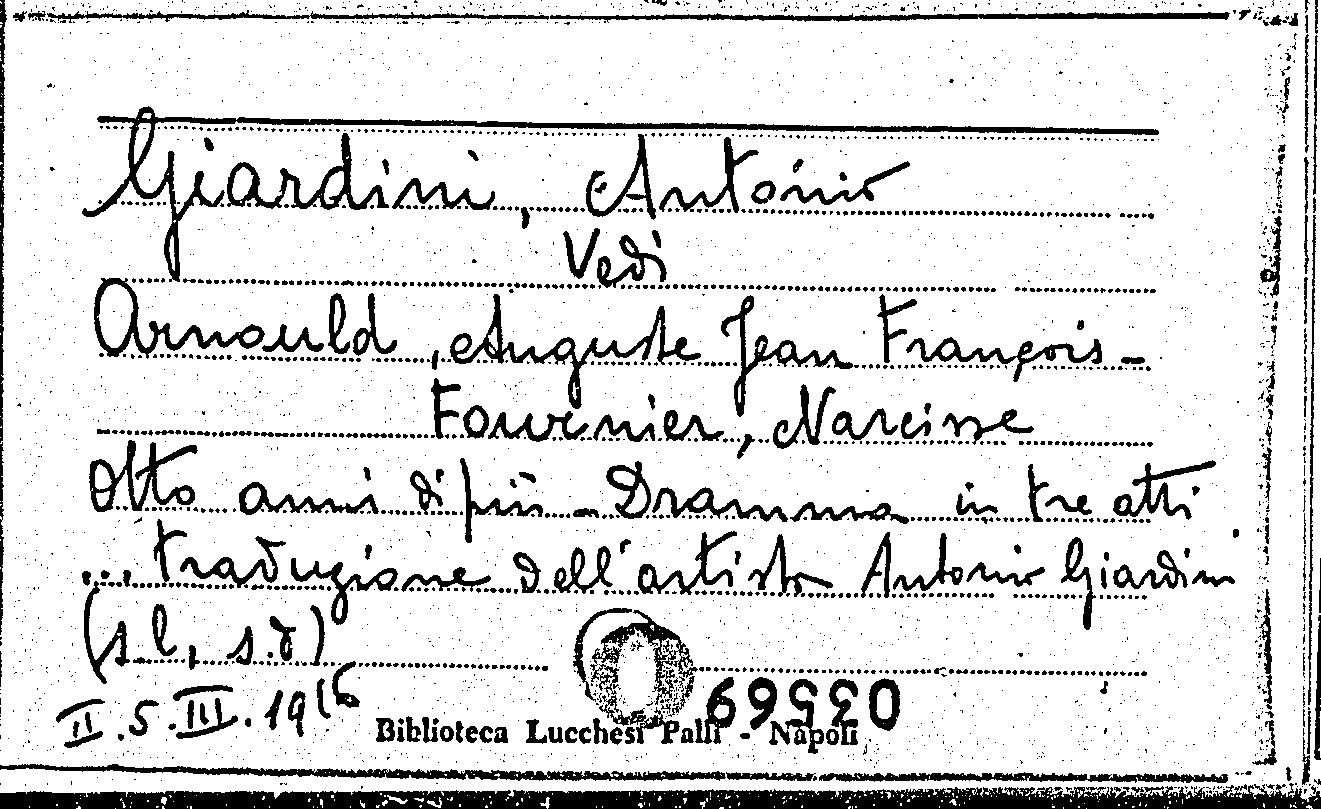 Giardini, Antonio
Vedi
Arnould, Auguste Jean François -
Fournier, Narcisse
Otto anni di più - Dramma in tre atti
... traduzione dell'artista Antonio Giardini
(s.l., s.d)
II.5.III.19
Biblioteca Lucchesi Palli - Napoli